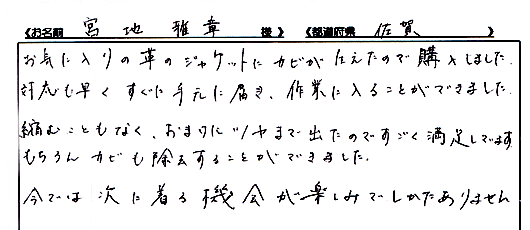 《お名前 宮地 雅章 様》《都道府県 佐賀 》
お気に入りの革のジャケットにカビが生えたので購入しました。
対応も早くすぐに手元に届き、作業に入ることができました。
縮むこともなく、おまけにツヤまで出たのですごく満足してます
もちろんカビも除去することができました。
今では次に着る機会が楽しみでしかたありません